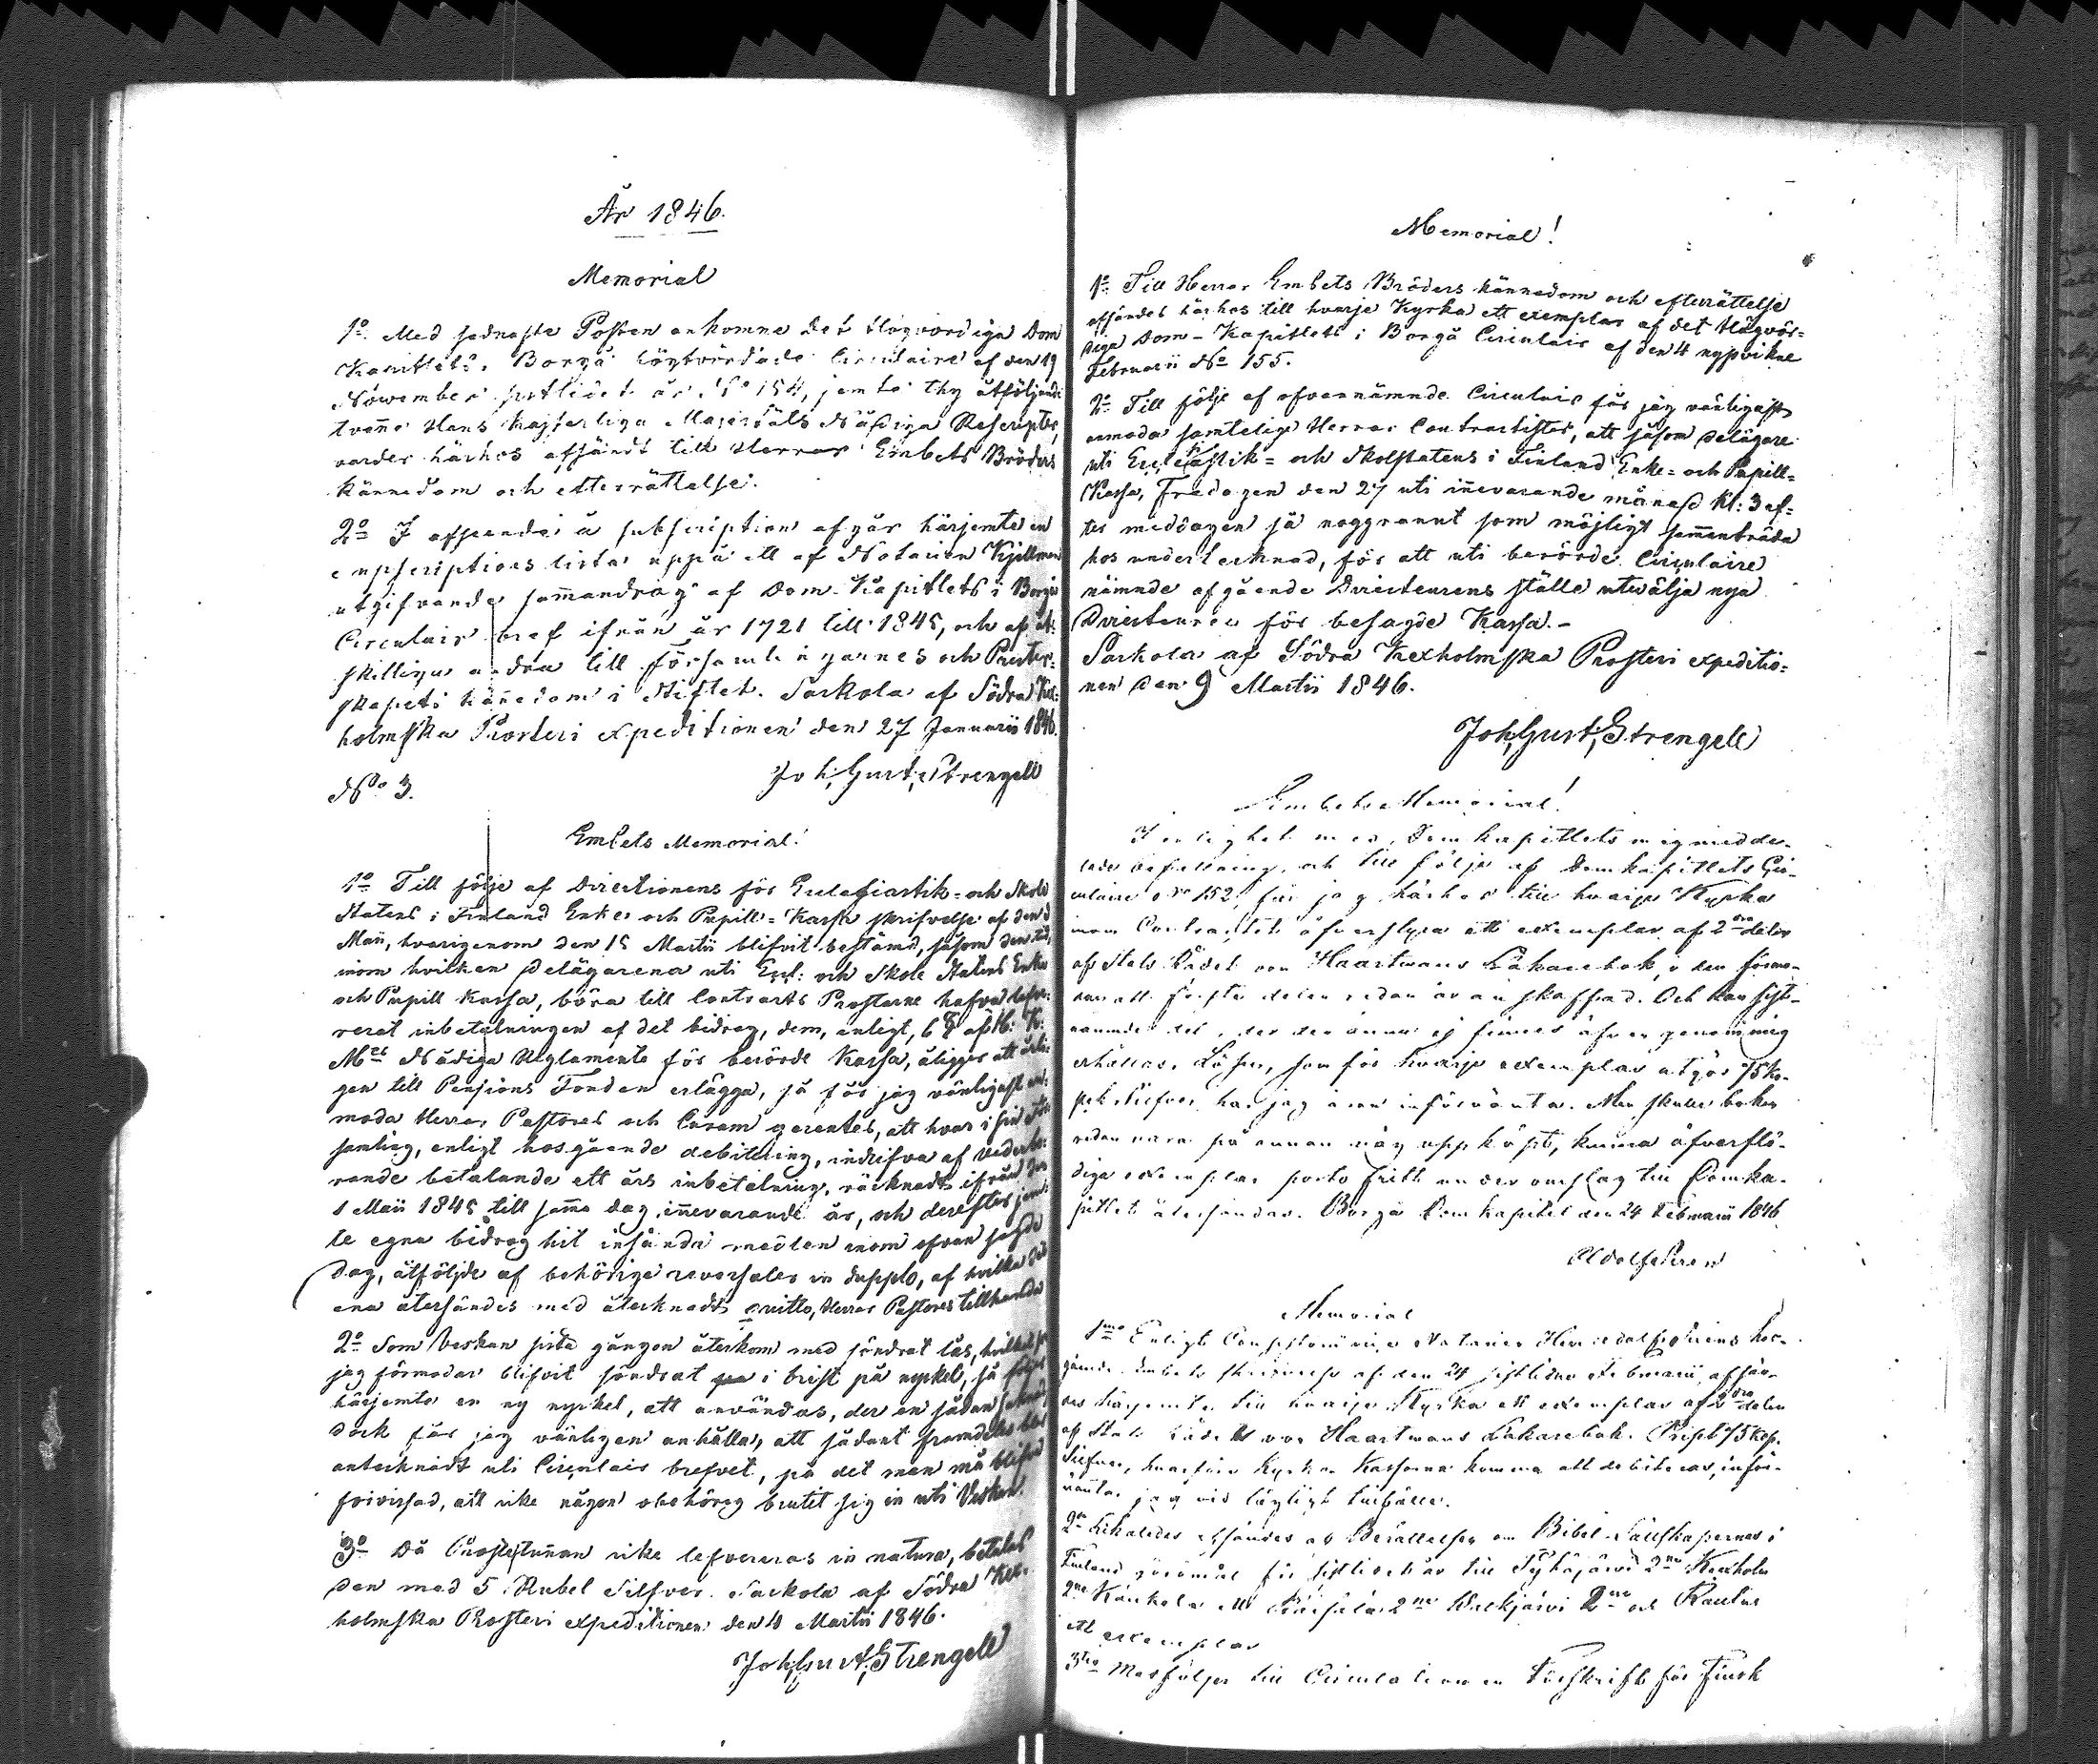 År 1846.
Memorial
1o Med sednaste Posten ankomne det Högvördiga Dom
Kapitlets i Borgå högtvördade Circulaire af den 19
November sistlidet år No 154, jemte thy åtföljande
tvänne Hans Kejserliga Majestäts Nådiga Rescripter,
varder härhos afsändt till Herrar Embets Bröders
kännedom och efterrättelse.
2o I afseende å subscription afgår härjemte en
supscriptions lista uppå ett af Notarien Kjillman
utgifvande sammandrag af Dom-Kapitlets i Borgå
Circulair bref ifrån år 1721 till 1845, och af åt-
skilliga andra till församlingarnes och Prester-
skapets kännedom i Stiftet. Sackola af Södra Kex-
holmska Prosteri expeditionen den 27 Januarii 1846.
Joh. Gust. Strengell
No 3.
Embets Memorial!
1o Till följe af Directionens för Eclesiastik- och Skole
Statens i Finland Enke- och Pupill-Kassa skrifvelse af den
Maii, hvarigenom den 15 Martii blifvit bestämd, såsom den tid,
inom hvilken delägarena uti Eccl: och Skole Statens Enke
och Pupill Kassa, böra till Contracts Prostarne hafva lefve-
rerat inbetalningen af det bidrag, dem, enligt, 6 § af H: K:
Mts Nådiga Reglemente för berörde Kassa, åligger att årli-
gen till Pensions Fonden erlägga, så får jag vänligast an-
moda Herrar Pastores och Curam gerentes, att hvar i sin
samling, enligt hosgående debitering, indrifva af vederbö-
rande betalande ett års inbetalning, räcknadt ifrån den
1 Maii 1845 till samma dag innevarande år, och derefter jem-
te egna bidrag hit insända medlen inom ofvan sagde
dag, åtföljde af behörige reversaler in dupplo, af hvilka det
ena återsändes med återknadt qvitto, Herrar Pastores tillhanda
2o Som Veskan sista gången återkom med söndrat lås, hvilket
jag förmodar blifvit söndrat i brist på nyckel, så följer
härjemte en ny nyckel, att användas, der en sådan saknas,
dock får jag vänligen anhålla, att sådant framdeles blir
antecknadt uti Circulair brefvet, på det man må blifva
förvissad, att icke någon obehörig brutit sig in uti Veskan.
3o Då Prostetunnan icke lefvereras in natura, betalas
den med 5 Rubel Silfver. Sackola af Södra Kex-
holmska Prosteri expeditionen den 4 Martii 1846.
Joh. Gust. Strengell
Memorial!
1o Till Herrar Embets Bröders kännedom och efterrättelse
afsändes härhos till hvarje Kyrka ett exemplar af det Högvör-
diga Dom-Kapitlets i Borgå Circulair af den 4 nystvikne
Februarii No 155.
2o Till följe af ofvannämnde Circulair får jag vänligast
anmoda samtelige Herrar Contractister, att såsom delägare
uti Ecclesiastik- och Skolstatens i Finland Enke- och Pupill-
Kassa, Fredagen den 27 uti innevarande månad Kl: 3 ef-
ter middagen så noggrannt som möjligt sammanträda
hos undertecknad, för att uti berörde Circulaire
nämnde afgående Directeurens ställe utvälja nya
Directeurer för besagde Kassa.-
Sackola af Södra Kexholmska Prosteri expeditio-
nen den 9 Martii 1846.
Joh. Gust. Strengell
Embets Memorial!
I enlighet med Domkapitlets mig medde-
lade befallning, och till följe af Domkapitlets Cir-
culaire No 152, får jag härhos till hvarje Kyrka
inom Contractet öfverstyra ett exemplar af 2dra delen
af Stats Rådet von Haartmans Läkarebok, i den förmo-
dan att första delen redan är anskaffad. Och kan sist-
nämnde del, der den ännu ej finnes äfven genom mig
erhållas. Lösen, som för hvarje exemplar utgör 75 Ko-
pek Silfver, har jag äran införvänta. Men skulle boken
redan vara på annan väg uppköpt, kunna öfverflö-
diga exemplar porto fritt under omslag till Domka-
pitlet återsändas. Borgå Domkapitel den 24 Februarii 1846
Memorial
1mo Enligt Consistorii vice Notarien Herr hos-
gående Embets skrifvelse af den 24 sistlidne Februarii, afsän-
des härjemte till hvarje Kyrka ett exemplar af 2dra delen
af Stats Rådets von Haartmans Läkarebok. Priset 75 Kop.
Silfver, hvarföre Kyrko Kassorna komma att debiteras, inför-
väntar jag vid lägligt tillfälle.
2do Likaledes afsändes af Berättelser om Bibel-Sällskapernes i
Finland göromål för sistlidet år till Pyhäjärvi 2ne Kexholm
2ne Räisälä 2ne 2ne och Rautus
ett exemplar
3tio Medföljer till Circulation en Förskrift för Finsk